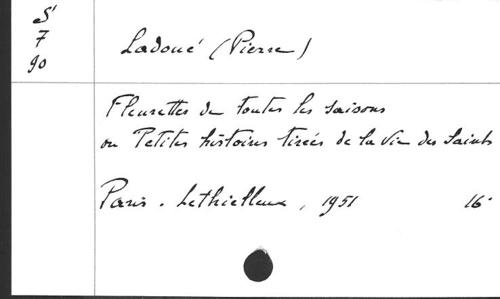 S'
7
90
Ladoué (Pierre)
Fleurettes de toutes les saisons
ou Petites histoires tirées de la vie des Saints
Paris. Lethielleux, 1951 16°